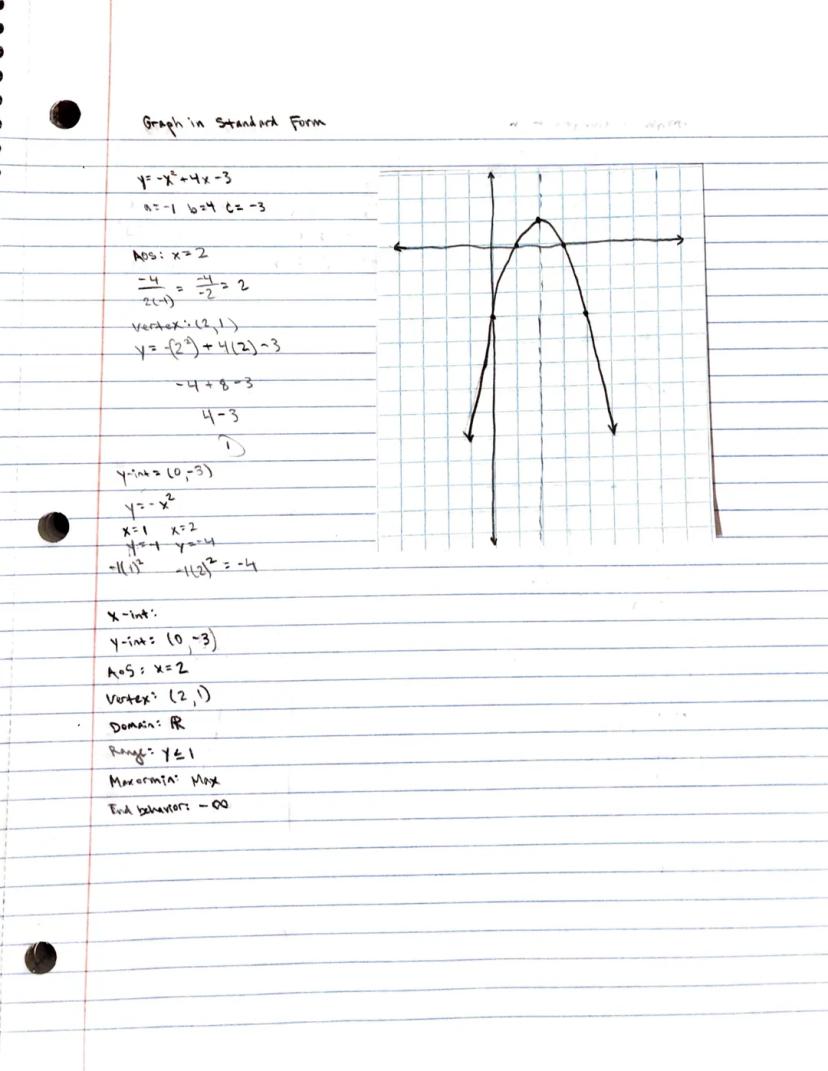 Graph in Standard Form
y = -x² + 4x - 3
a = -1 b = 4 c = -3
AOS: x = 2
-4/2(-1) = -4/-2 = 2
vertex: (2, 1)
y = -(2²) + 4(2) - 3
-4 + 8 - 3
4 - 3
1
y-int = (0, -3)
y = -x²
x = 1 x = 2
y = -1 y = -4
-1(1)² -1(2)² = -4
X-int:
Y-int: (0, -3)
AOS: x = 2
Vertex: (2, 1)
Domain: ℝ
Range: y ≤ 1
Max or min: Max
End behavior: -∞